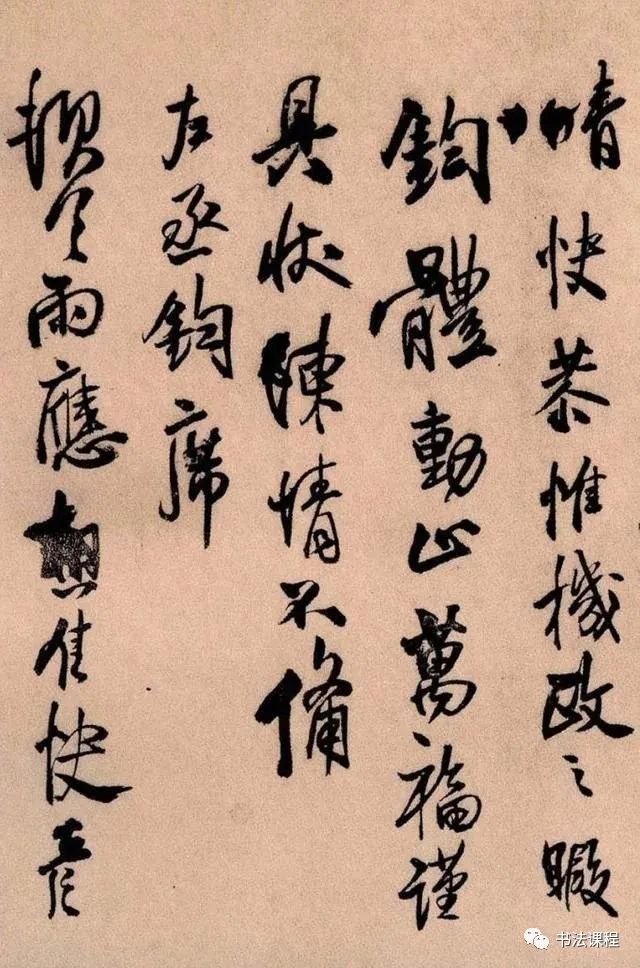 晴快恭惟機政之暇
鈞體動止萬福謹
具狀陳情不備
左丞鈞席
雨應想佳快彥